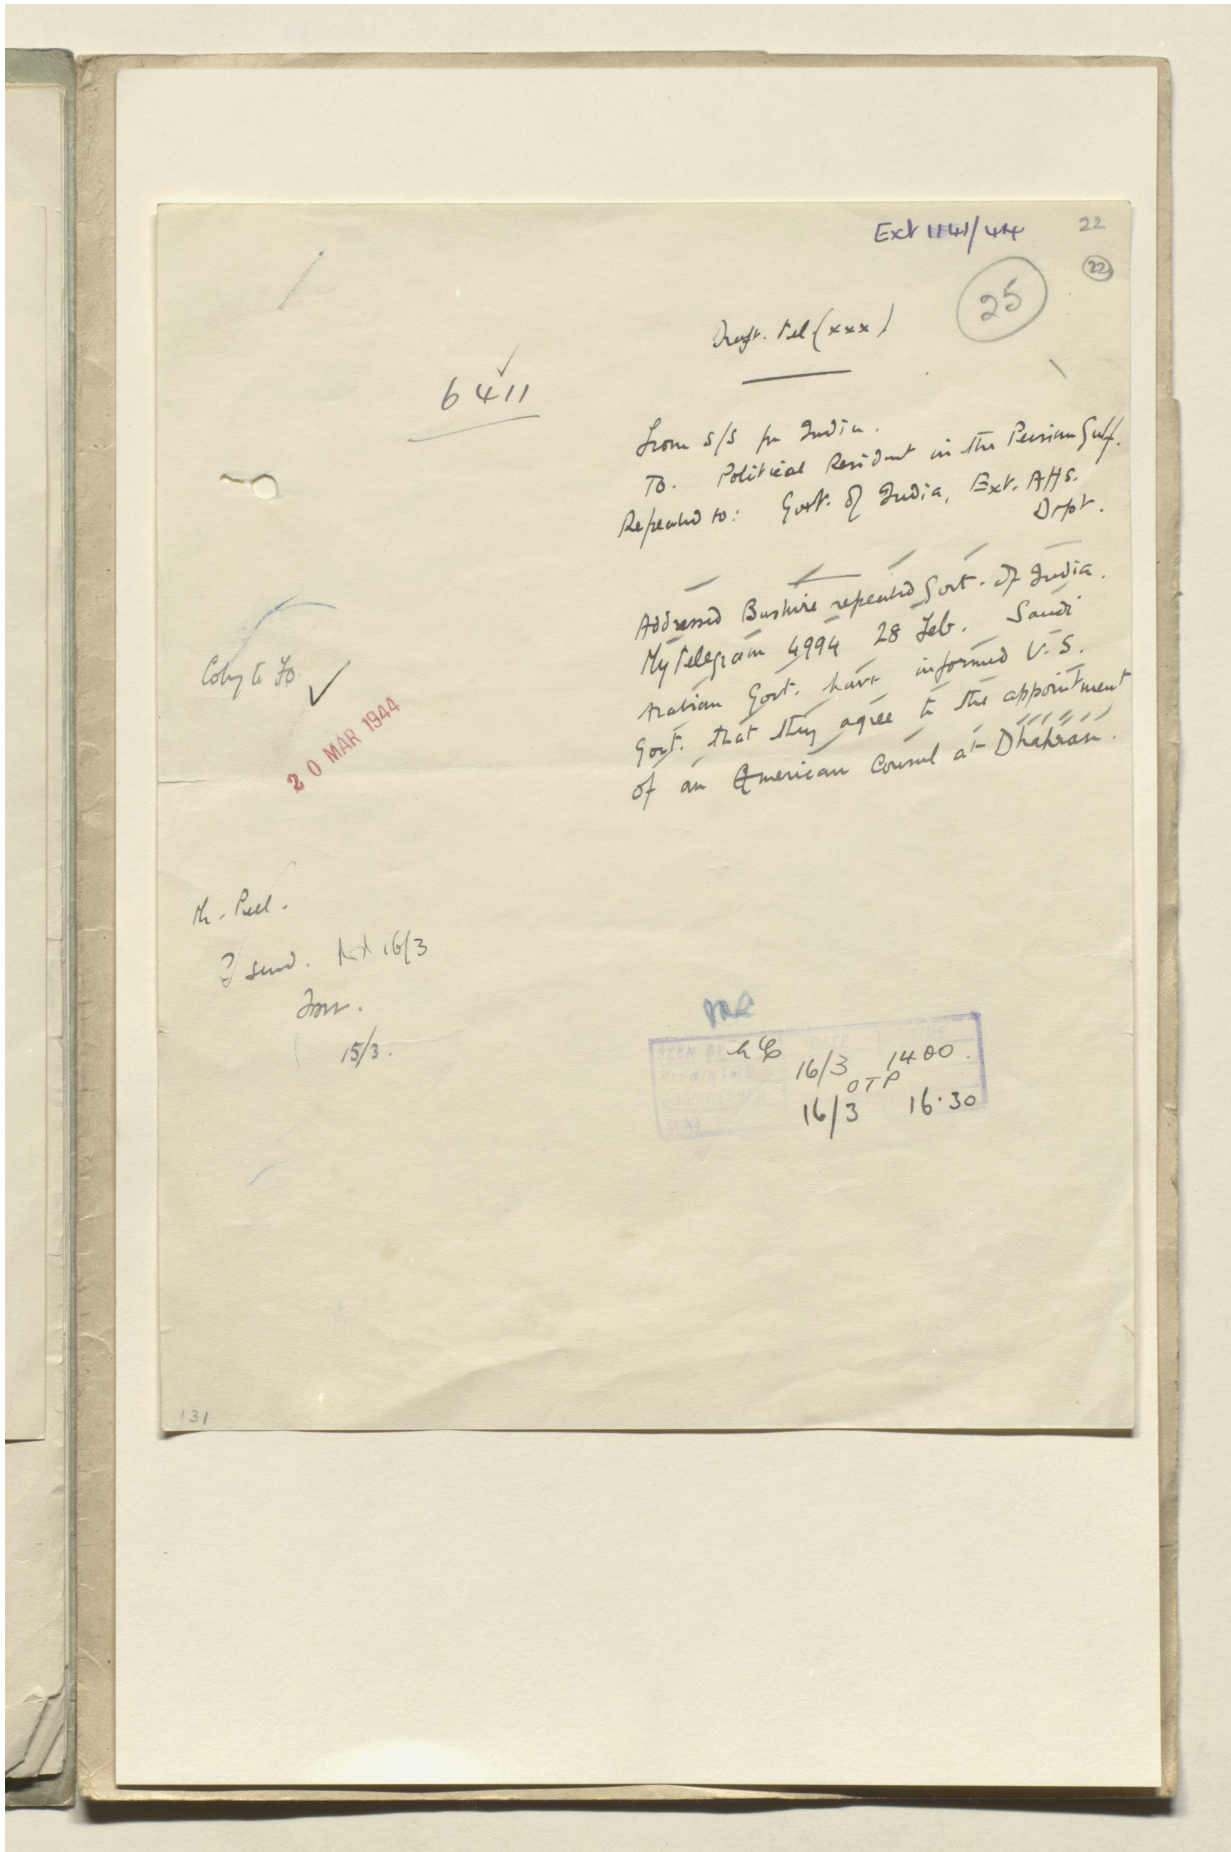 Ext 1141/44
22
22
25
Draft. Tel (xxx)
6411
From S/S for India.
To. Political Resident in the Persian Gulf.
Repeated to: Govt. of India, Ext. Affs.
Dept.
Addressed Bushire repeated Govt. of India.
My telegram 4994 28 Feb. Saudi
Arabian Govt. have informed U.S.
Govt. that they agree to the appointment
of an American Consul at Dhahran.
Copy to FO.
20 MAR 1944
Mr. Peel.
? send. 16/3
15/3.
SEEN BY DATE
16/3 1400.
OTP
16/3 16.30
131